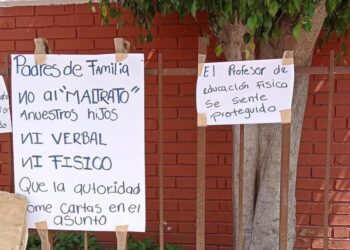 Padres de Familia
no al "MALTRATO"
A nuestros hijos
NI VERBAL
NI FISICO
Que la autoridad
tome cartas en el
asunto
El Profesor de
educación fisica
Se siente
proteguido